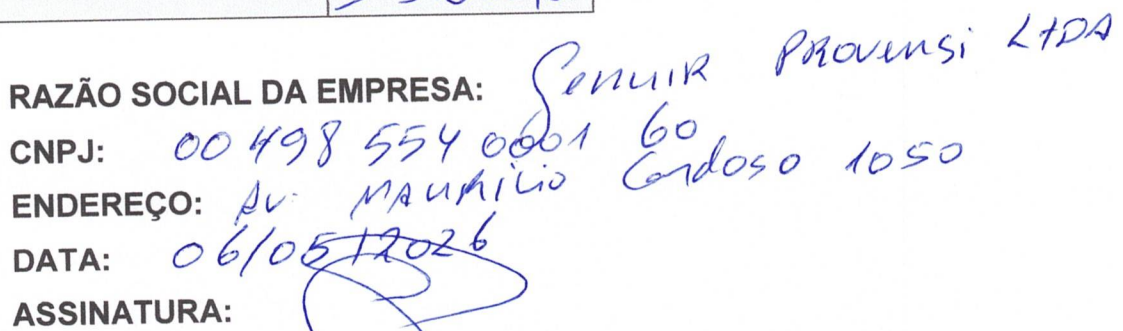 RAZÃO SOCIAL DA EMPRESA: Genuir Provensi LTDA
CNPJ: 00 498 554 0001 60
ENDEREÇO: Av. Maurilio Cardoso 1050
DATA: 06/05/2026
ASSINATURA: